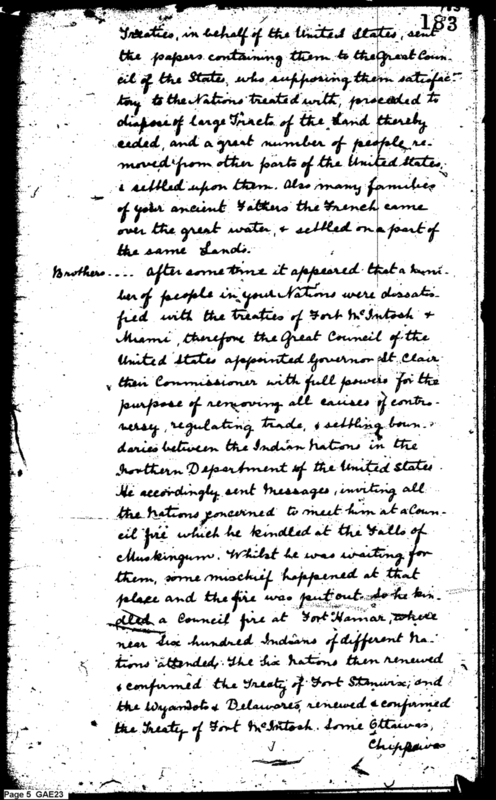 183
Treaties, in behalf of the United States, sent
the papers containing them to the Great Coun-
cil of the States, who supposing them satisfac-
tory to the Nations treated with, proceeded to
dispose of large Tracts of the Land thereby
ceded, and a great number of people re-
moved from other parts of the United States,
& settled upon them. Also many families
of your ancient Fathers the French came
over the great water, & settled on a part of
the same Lands.
Brothers .... After some time it appeared that a num-
ber of people in your Nations were dissatis-
fied with the treaties of Fort McIntosh &
Miami, therefore the Great Council of the
United States appointed Governor St. Clair
their Commissioner with full powers for the
purpose of removing all causes of contro-
versy, regulating trade, & settling boun-
daries between the Indian Nations in the
Northern Department of the United States.
He accordingly sent Messages, inviting all
the Nations concerned to meet him at a Coun-
cil fire which he kindled at the Falls of
Muskingum. Whilst he was waiting for
them, some mischief happened at that
place and the fire was put out. So he kin-
dled a Council fire at Fort Hamar, where
near Six hundred Indians of different Na-
tions attended. The Six Nations then renewed
& confirmed the Treaty of Fort Stanwix; and
the Wyandots & Delawares, renewed & confirmed
the Treaty of Fort McIntosh. Some Ottawas,
Chippawas
Page 5 GAE23